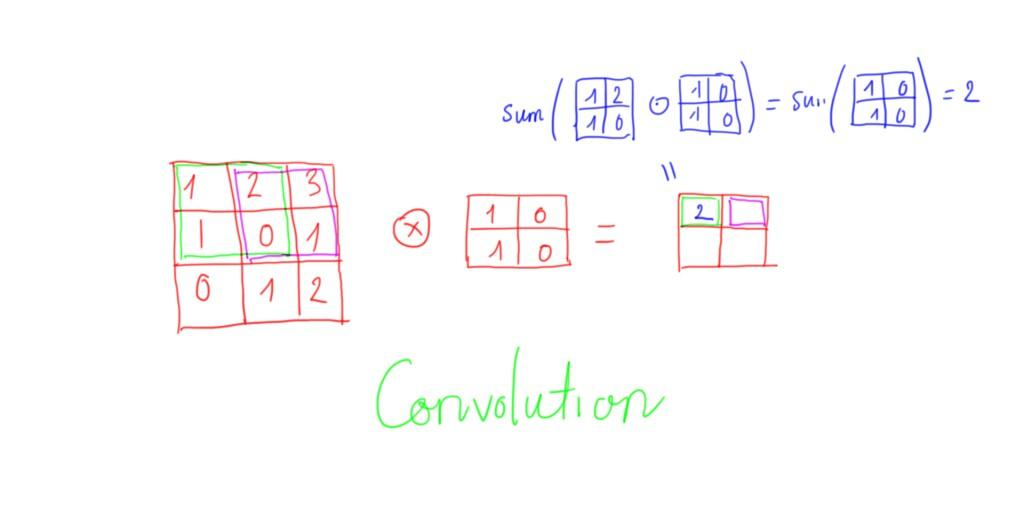 sum ( 1 2 1 0 ⊙ 1 0 1 0 ) = sum ( 1 0 1 0 ) = 2
=
1 2 3 ⊗ 1 0 = 2
1 0 1 1 0
0 1 2
Convolution